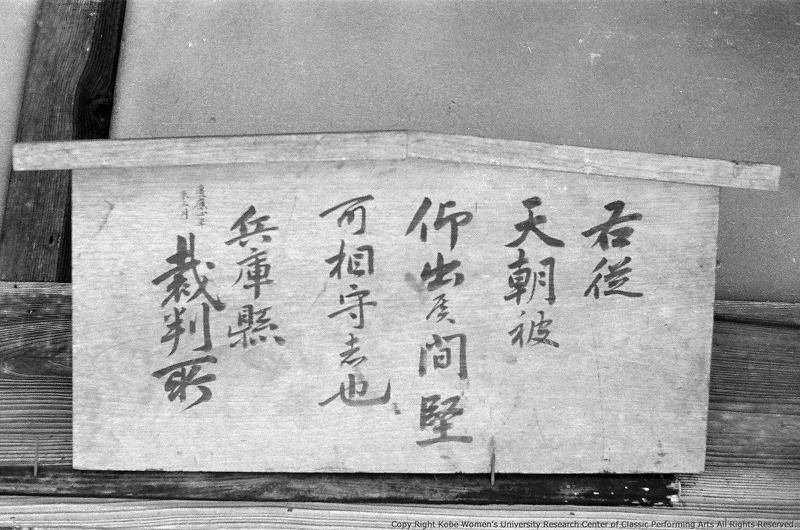 右従
天朝被
仰出候間堅
可相守者也
兵庫縣
裁判所
慶應四年
Copy Right Kobe Women's University Research Center of Classic Performing Arts All Rights Reserved